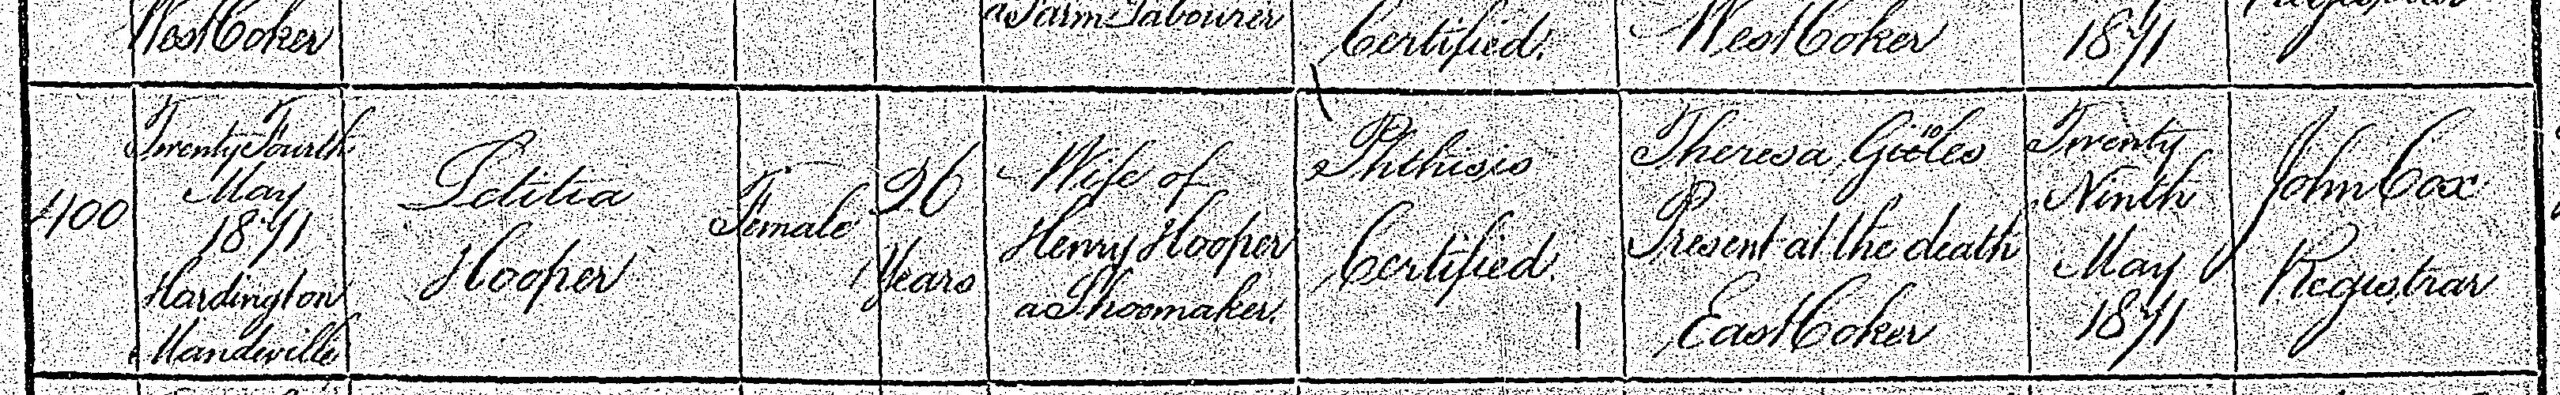 West Coker
a Farm Labourer
Certified.
West Coker
1871
Registrar
400
Twenty Fourth
May
1871
Hardington
Mandeville
Letitia
Hooper
Female
26
Years
Wife of
Henry Hooper
a Shoemaker.
Phthisis
Certified.
Theresa
Present at the death
East Coker
Twenty
Ninth
May
1871
John Cox
Registrar